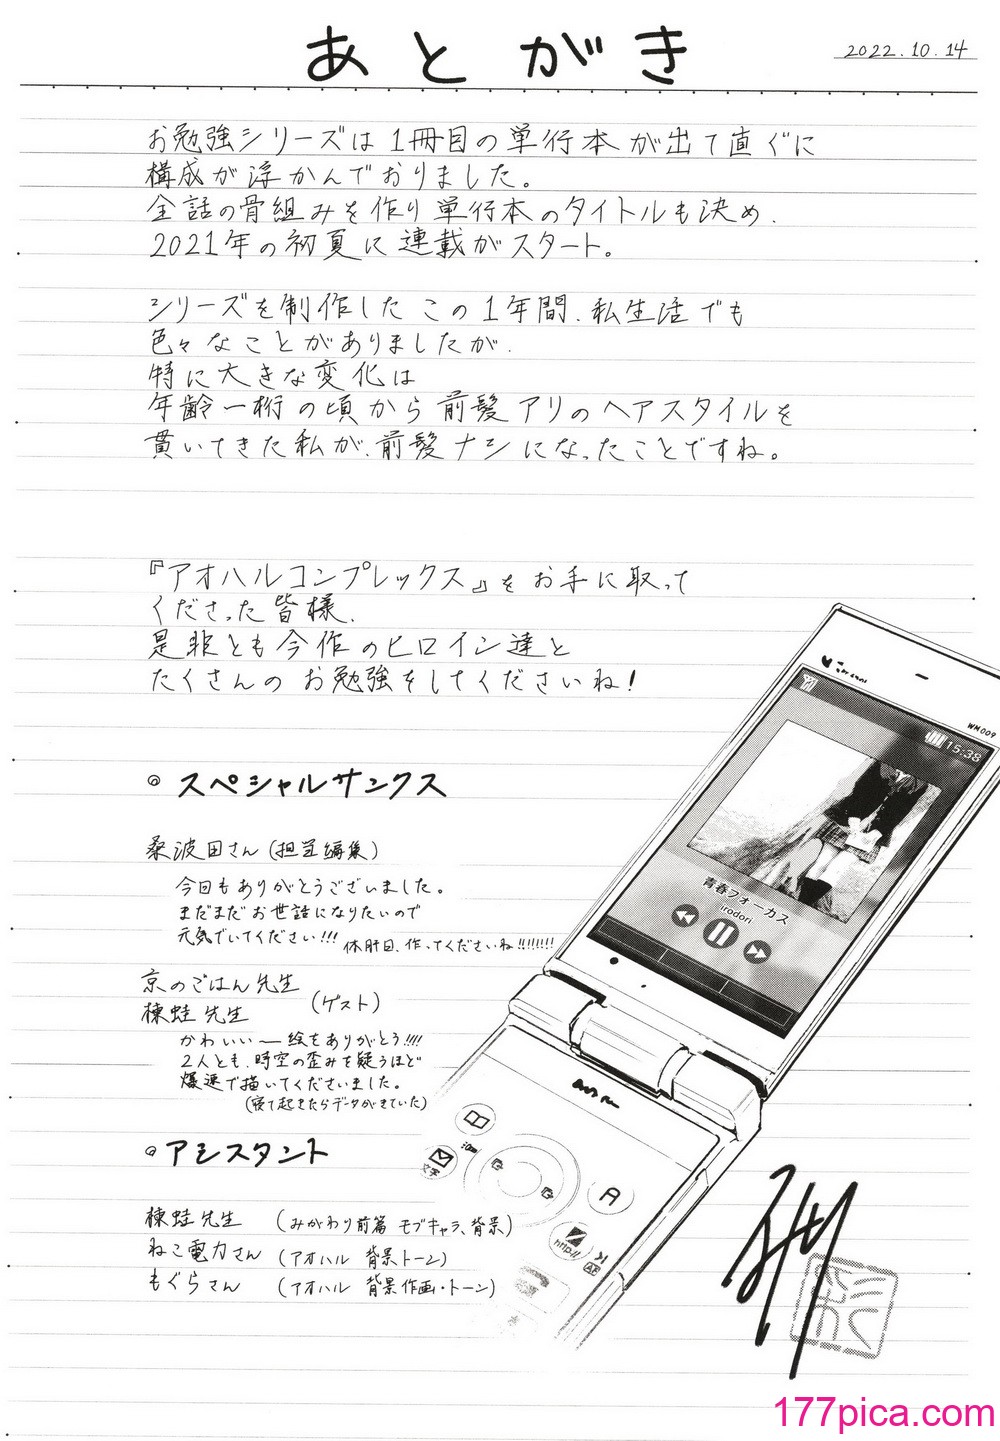 あとがき
2022.10.14
お勉強シリーズは1冊目の単行本が出て直ぐに
構成が浮かんでおりました。
全話の骨組みを作り単行本のタイトルも決め、
2021年の初夏に連載がスタート。
シリーズを制作したこの1年間、私生活でも
色々なことがありましたが、
特に大きな変化は
年齢一桁の頃から前髪アリのヘアスタイルを
貫いてきた私が、前髪ナシになったことですね。
『アオハルコンプレックス』をお手に取って
くださった皆様、
是非とも今作のヒロイン達と
たくさんのお勉強をしてくださいね!
WM009
15:38
青春フォーカス
irodori
◎スペシャルサンクス
桑波田さん(担当編集)
今回もありがとうございました。
まだまだお世話になりたいので
元気でいてください!!!
休肝日、作ってくださいね!!!!!!!!
京のごはん先生
棟蛙先生
(ゲスト)
かわいい〜絵をありがとう!!!!
2人とも、時空の歪みを疑うほど
爆速で描いてくださいました。
(寝て起きたらデータがきていた)
◎アシスタント
棟蛙先生 (みがわり前篇 モブキャラ、背景)
ねこ電力さん (アオハル 背景トーン)
もぐらさん (アオハル 背景作画・トーン)
文字
A
http://
AF
177pica.com